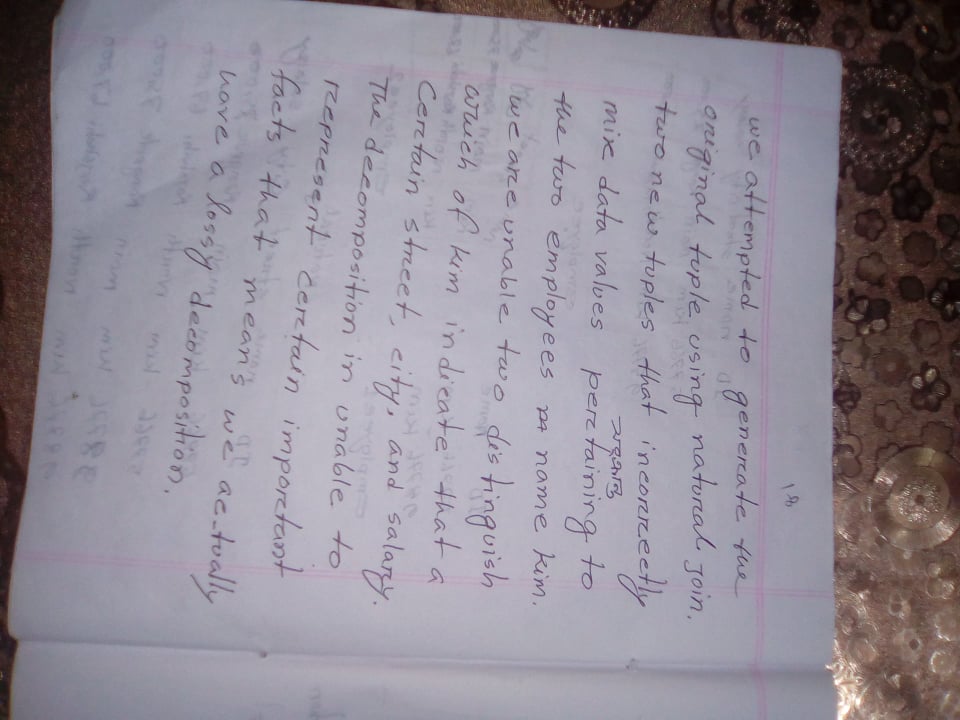 18
we attempted to generate the
original tuple using natural join.
two new tuples that incorrectly
mix data values pertaining to
the two employees name kim.
we are unable two distinguish
which of kim indicate that a
certain street, city, and salary.
The decomposition in unable to
represent certain important
facts that mean's we actually
have a lossy decomposition.